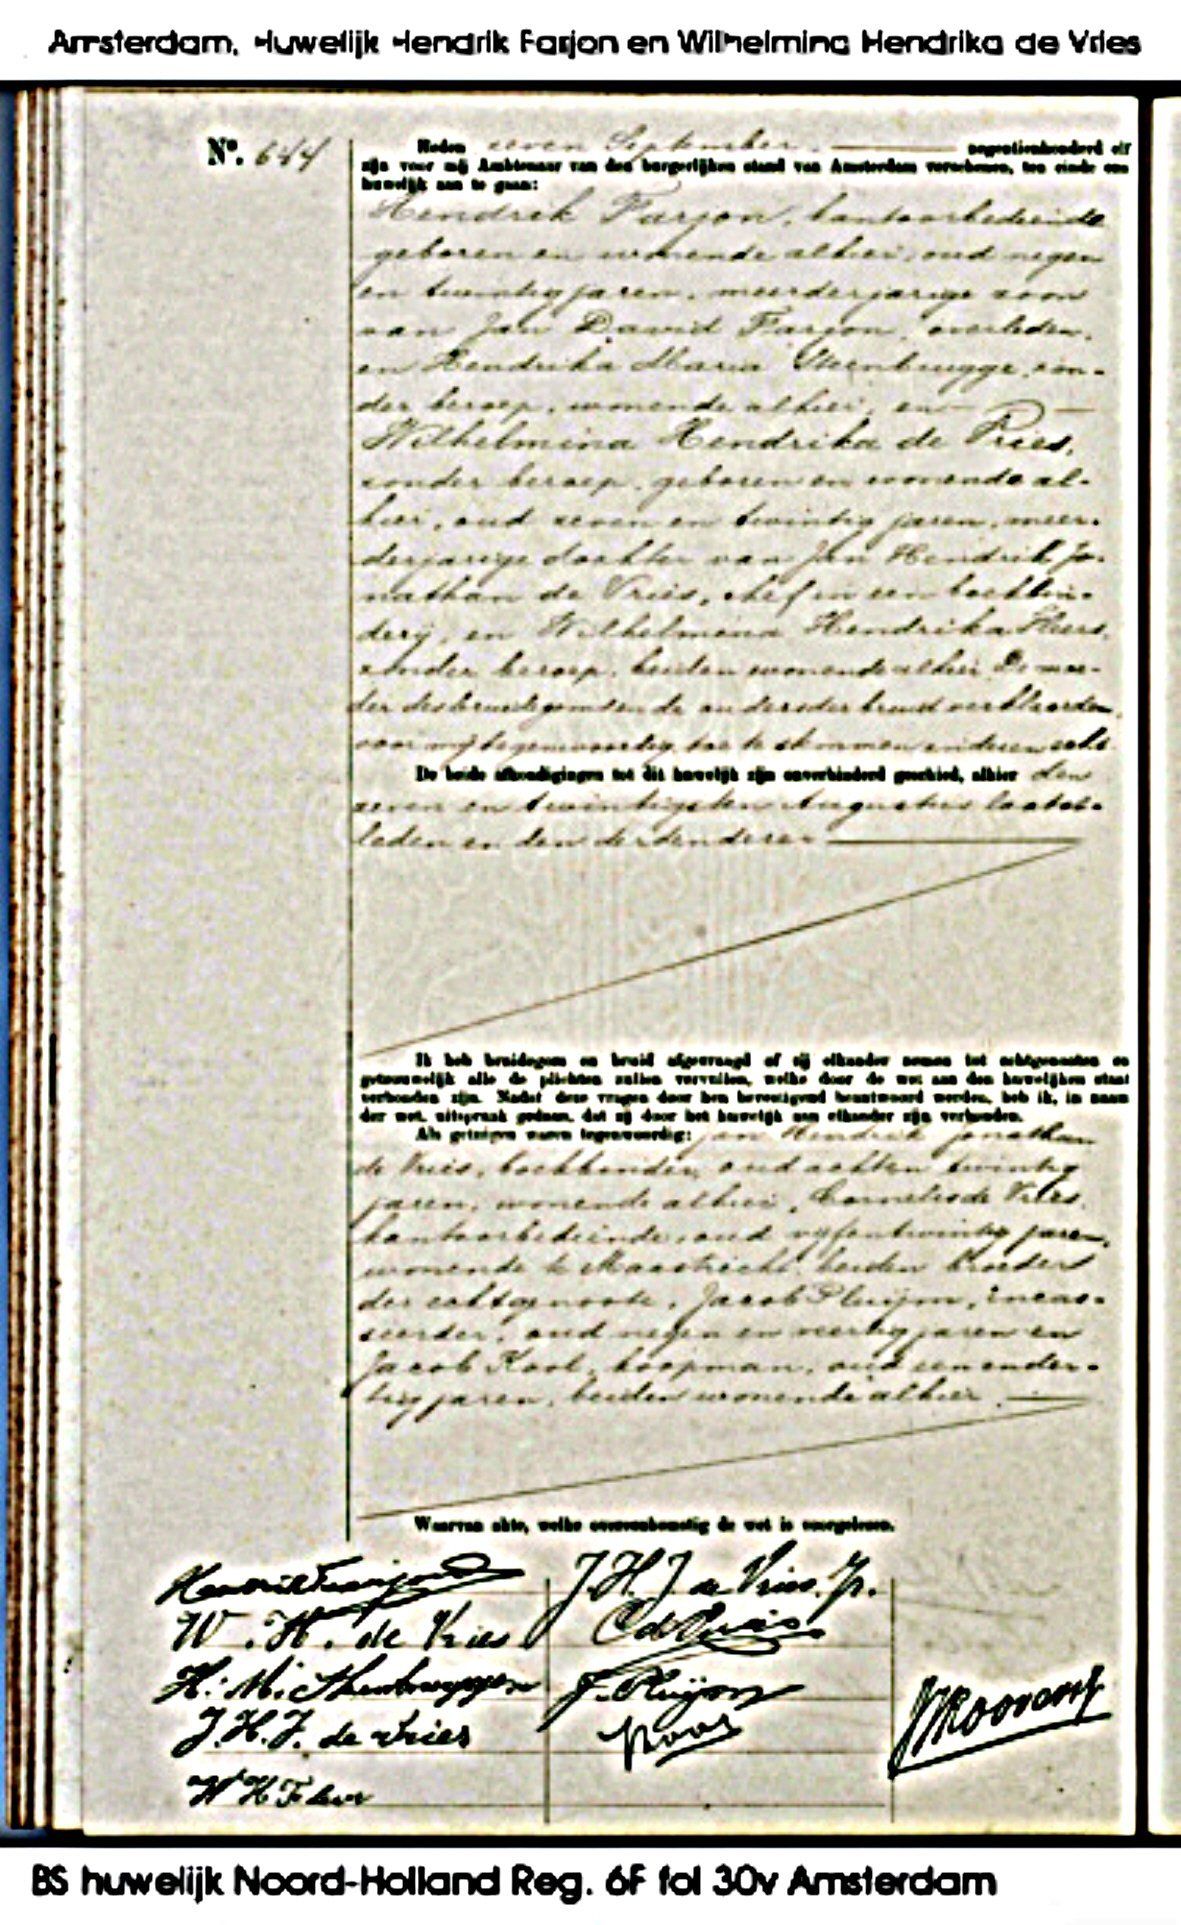 Amsterdam, Huwelijk Hendrik Farjon en Wilhelmina Hendrika de Vries
No.
Heden zeven September negentienhonderd elf
zijn voor mij Ambtenaar van den burgerlijken stand van Amsterdam verschenen, ten einde een
huwelijk aan te gaan:
Hendrik Farjon, kantoorbediende
geboren en wonende alhier, oud negen
en twintig jaren, meerderjarige zoon
van Jan David Farjon, overleden,
en Hendrika Maria Steenbrugge, zon-
der beroep, wonende alhier, en
Wilhelmina Hendrika de Vries,
zonder beroep, geboren en wonende al-
hier, oud zeven en twintig jaren, meer-
derjarige dochter van Jan Hendrik Jo-
nathan de Vries, chef in een boekbin-
derij, en Wilhelmina Hendrika
zonder beroep, beiden wonende alhier. De moe-
der des bruidegoms en de ouders der bruid verklaarden
voor mij tegenwoordig toe te stemmen in dezen echt
De beide afkondigingen tot dit huwelijk zijn onverhinderd geschied, alhier den
zeven en twintigsten Augustus laatstle-
leden en den derden dezer
Ik heb bruidegom en bruid afgevraagd of zij elkander nemen tot echtgenooten en
getrouwelijk alle de plichten zullen vervullen, welke door de wet aan den huwelijken staat
verbonden zijn. Nadat deze vragen door hen bevestigend beantwoord werden, heb ik, in naam
der wet, uitspraak gedaan, dat zij door het huwelijk aan elkander zijn verbonden.
Als getuigen waren tegenwoordig: Jan Hendrik Jonathan
de Vries, boekbinder, oud acht en twintig
jaren, wonende alhier, Cornelis de Vries,
kantoorbediende, oud vijf en twintig jaren,
wonende te Maastricht, beiden broeders
der echtgenoote, Jacob Pluijm, incas-
seerder, oud negen en veertig jaren en
Jacob Kool, koopman, oud een en der-
tig jaren, beiden wonende alhier.
Waarvan akte, welke overeenkomstig de wet is voorgelezen.
Hendrik Farjon
W. H. de Vries
H. M. Steenbrugge
J. H. J. de Vries
W H
J. H. J de Vries. Jr.
C de Vries
J. Pluijm
BS huwelijk Noord-Holland Reg. 6F fol 30v Amsterdam